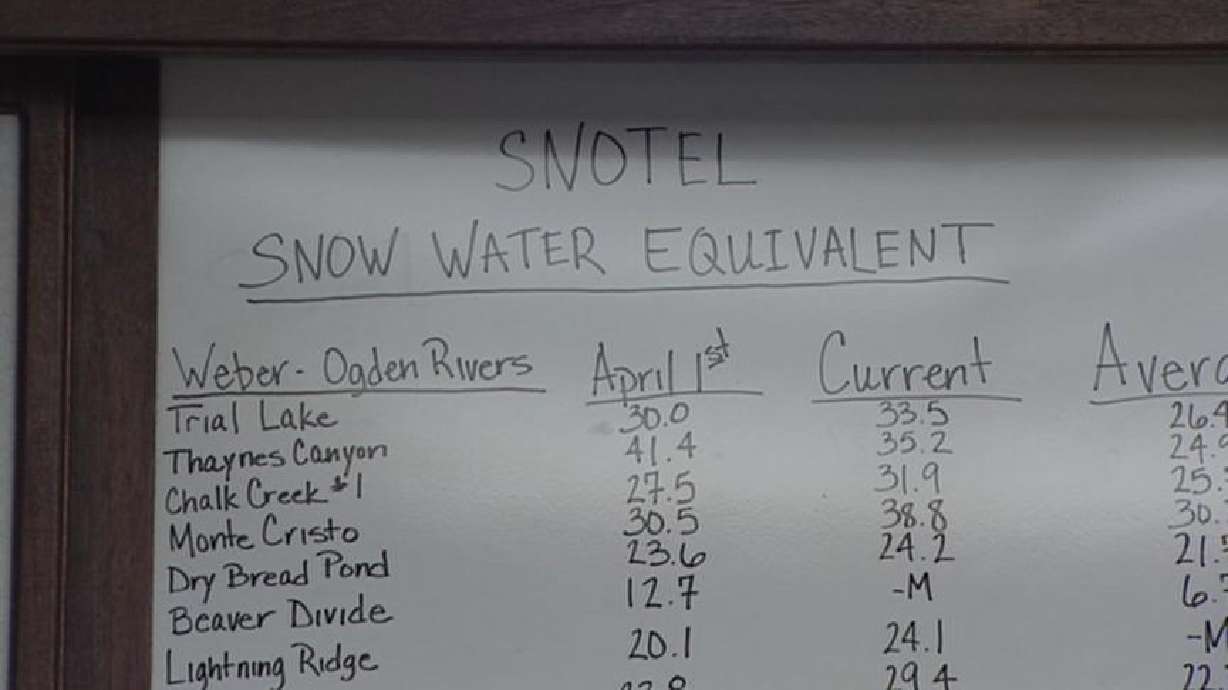 SNOTEL
SNOW WATER EQUIVALENT
Weber-Ogden Rivers April 1st Current Avera
Trial Lake 30.0 33.5 26.4
Thaynes Canyon 41.4 35.2 24.9
Chalk Creek #1 27.5 31.9 25.
Monte Cristo 30.5 38.8 30.
Dry Bread Pond 23.6 24.2 21.
Beaver Divide 12.7 -M 6.
Lightning Ridge 20.1 24.1 -M
29.4 22.